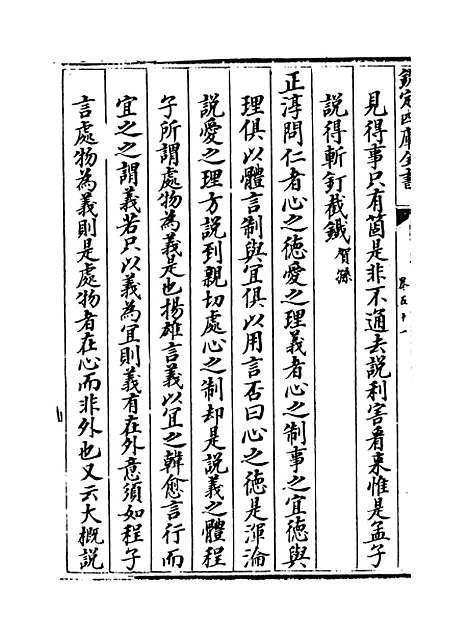 欽定四庫全書
卷五十一
見得事只有箇是非不通去説利害看來惟是孟子
説得斬釘截鐵賀孫
正淳問仁者心之徳愛之理義者心之制事之宜徳與
理俱以體言制與宜俱以用言否曰心之徳是渾淪
説愛之理方説到親切處心之制却是説義之體程
子所謂處物為義是也揚雄言義以宜之韓愈言行而
宜之之謂義若只以義為宜則義有在外意須如程子
言處物為義則是處物者在心而非外也又云大概説